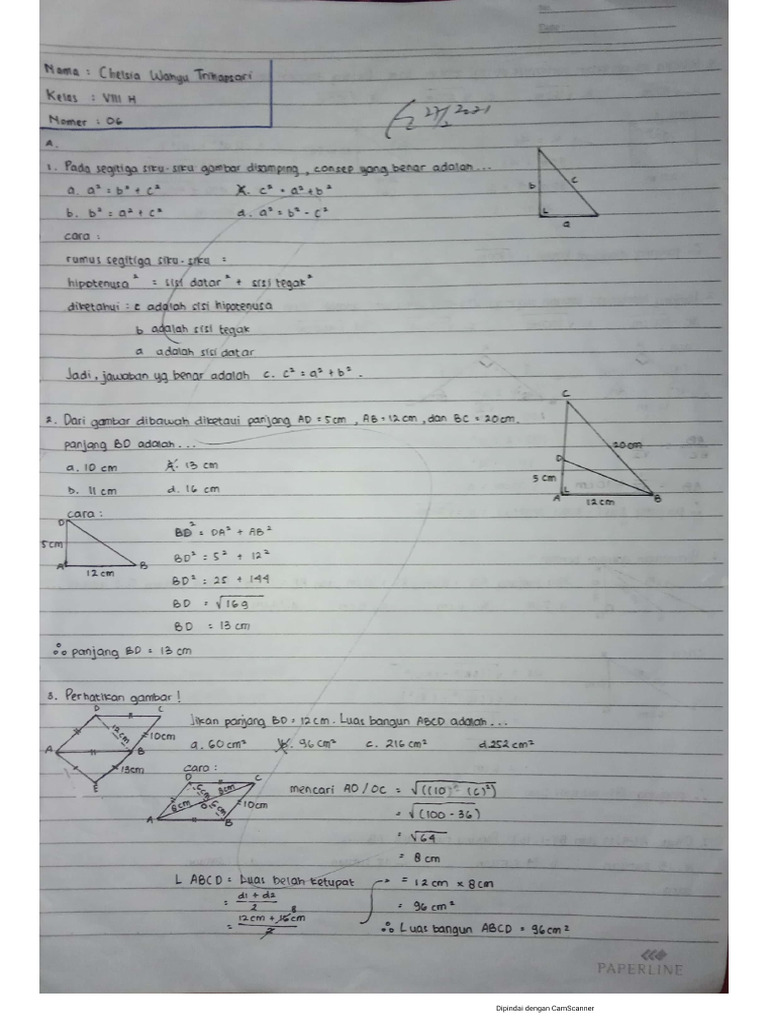 No.
Date
Nama : Chelsia Wahyu Trihapsari
Kelas : VIII H
Nomer : 06
27/2 2021
A.
1. Pada segitiga siku-siku gambar disamping, consep yang benar adalah ...
a. a² = b² + c² c. c² = a² + b²
b. b² = a² + c² d. a² = b² - c²
b c a
cara :
rumus segitiga siku-siku =
hipotenusa² = sisi datar² + sisi tegak²
diketahui : c adalah sisi hipotenusa
b adalah sisi tegak
a adalah sisi datar
Jadi, jawaban yg benar adalah c. c² = a² + b².
2. Dari gambar dibawah diketaui panjang AD = 5cm, AB = 12 cm, dan BC = 20 cm.
panjang BD adalah ...
a. 10 cm 13 cm
b. 11 cm d. 16 cm
C
20 cm
D
5 cm
A B
12 cm
cara :
D
5 cm
A B
12 cm
BD² = DA² + AB²
BD² = 5² + 12²
BD² = 25 + 144
BD = √169
BD = 13 cm
∴ panjang BD = 13 cm
3. Perhatikan gambar!
D C
12 cm 10cm
A B
13cm
E
Jikan panjang BD = 12 cm. Luas bangun ABCD adalah ...
a. 60 cm² b. 96 cm² c. 216 cm² d. 252 cm²
cara :
D C
6cm 8cm
8cm O 6cm 10cm
A B
mencari AO / OC = √((10)² - (6)²)
= √(100 - 36)
= √64
= 8 cm
L ABCD = Luas belah ketupat
= d1 + d2 / 2
= 12cm + 16 cm / 2
8
= 12 cm x 8 cm
= 96 cm²
∴ Luas bangun ABCD = 96 cm²
PAPERLINE
Dipindai dengan CamScanner